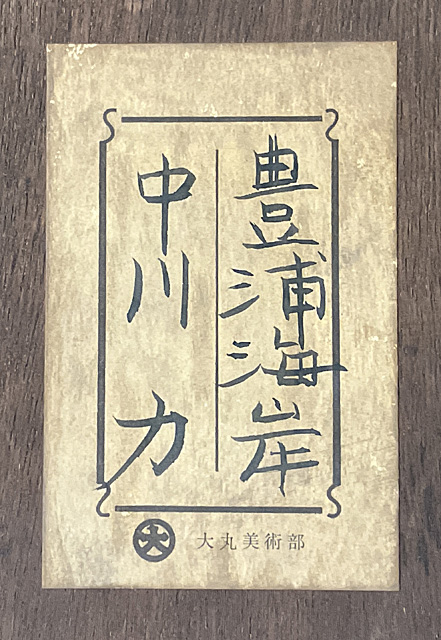 豊浦海岸
中川力
大 大丸美術部